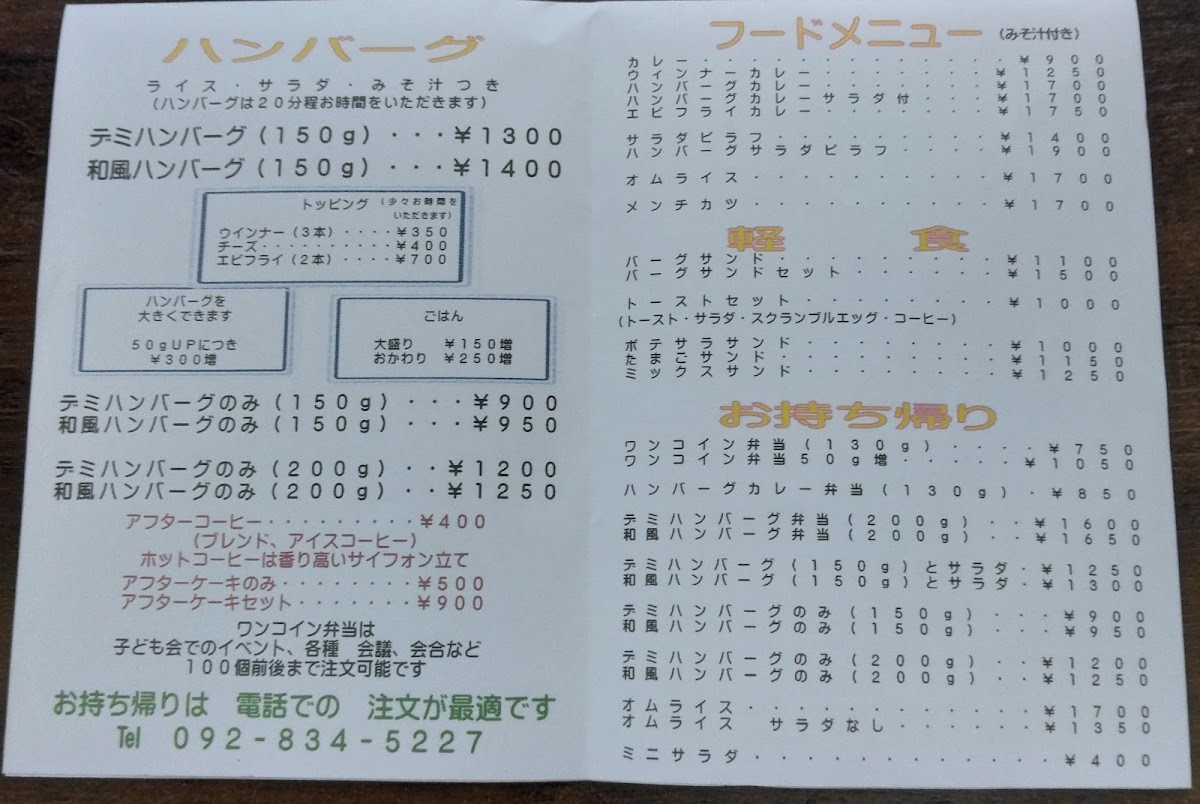 ハンバーグ
ライス・サラダ・みそ汁つき
(ハンバーグは20分程お時間をいただきます)
デミハンバーグ(150g)・・・¥1300
和風ハンバーグ(150g)・・・¥1400
トッピング (少々お時間を
いただきます)
ウインナー(3本)・・・・¥350
チーズ・・・・・・・・・・¥400
エビフライ(2本)・・・・¥700
ハンバーグを
大きくできます
50gUPにつき
¥300増
ごはん
大盛り ¥150増
おかわり ¥250増
デミハンバーグのみ(150g)・・・¥900
和風ハンバーグのみ(150g)・・・¥950
デミハンバーグのみ(200g)・・¥1200
和風ハンバーグのみ(200g)・・¥1250
アフターコーヒー・・・・・・・・・¥400
(ブレンド、アイスコーヒー)
ホットコーヒーは香り高いサイフォン立て
アフターケーキのみ・・・・・・・・¥500
アフターケーキセット・・・・・・・¥900
ワンコイン弁当は
子ども会でのイベント、各種 会議、会合など
100個前後まで注文可能です
お持ち帰りは 電話での 注文が最適です
Tel 092-834-5227
フードメニュー (みそ汁付き)
カレー・・・・・・・・・・・・¥900
ウィンナーカレー・・・・・・・¥1250
ハンバーグカレー・・・・・・・¥1700
ハンバーグカレーサラダ付・・・¥1700
エビフライカレー・・・・・・・¥1750
サラダピラフ・・・・・・・・・¥1400
ハンバーグサラダピラフ・・・・¥1900
オムライス・・・・・・・・・・¥1700
メンチカツ・・・・・・・・・・¥1700
軽 食
バーグサンド・・・・・・・・・¥1100
バーグサンドセット・・・・・・¥1500
トーストセット・・・・・・・・¥1000
(トースト・サラダ・スクランブルエッグ・コーヒー)
ポテサラサンド・・・・・・・・¥1000
たまごサンド・・・・・・・・・¥1150
ミックスサンド・・・・・・・・¥1250
お持ち帰り
ワンコイン弁当(130g)・・・・¥750
ワンコイン弁当50g増・・・・・¥1050
ハンバーグカレー弁当(130g)・¥850
デミハンバーグ弁当(200g)・・¥1600
和風ハンバーグ弁当(200g)・・¥1650
デミハンバーグ(150g)とサラダ・¥1250
和風ハンバーグ(150g)とサラダ・¥1300
デミハンバーグのみ(150g)・・・¥900
和風ハンバーグのみ(150g)・・・¥950
デミハンバーグのみ(200g)・・¥1200
和風ハンバーグのみ(200g)・・¥1250
オムライス・・・・・・・・・・・・¥1700
オムライス サラダなし・・・・・・¥1350
ミニサラダ・・・・・・・・・・・・・¥400